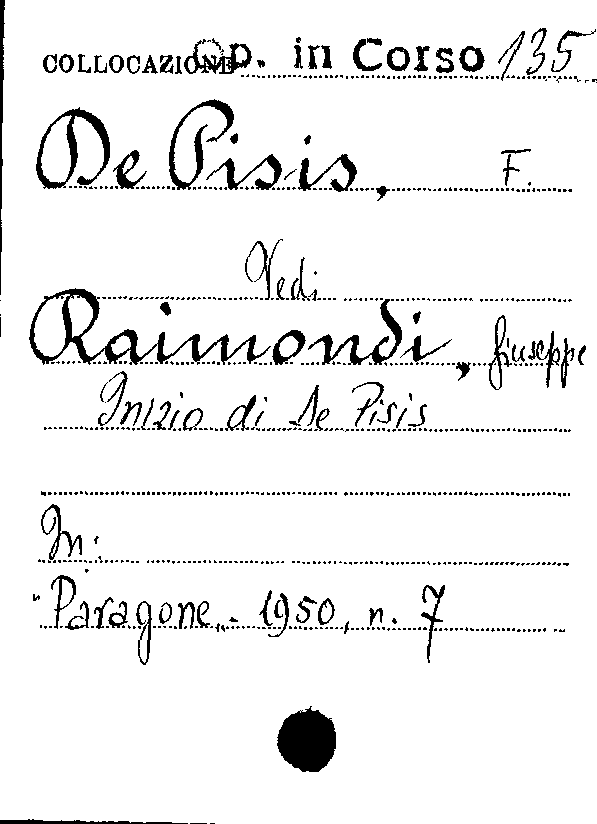 COLLOCAZIONE Op. in Corso 135
De Pisis, F.
Vedi
Raimondi, Giuseppe
Inizio di De Pisis
In:
"Paragone„. 1950, n. 7